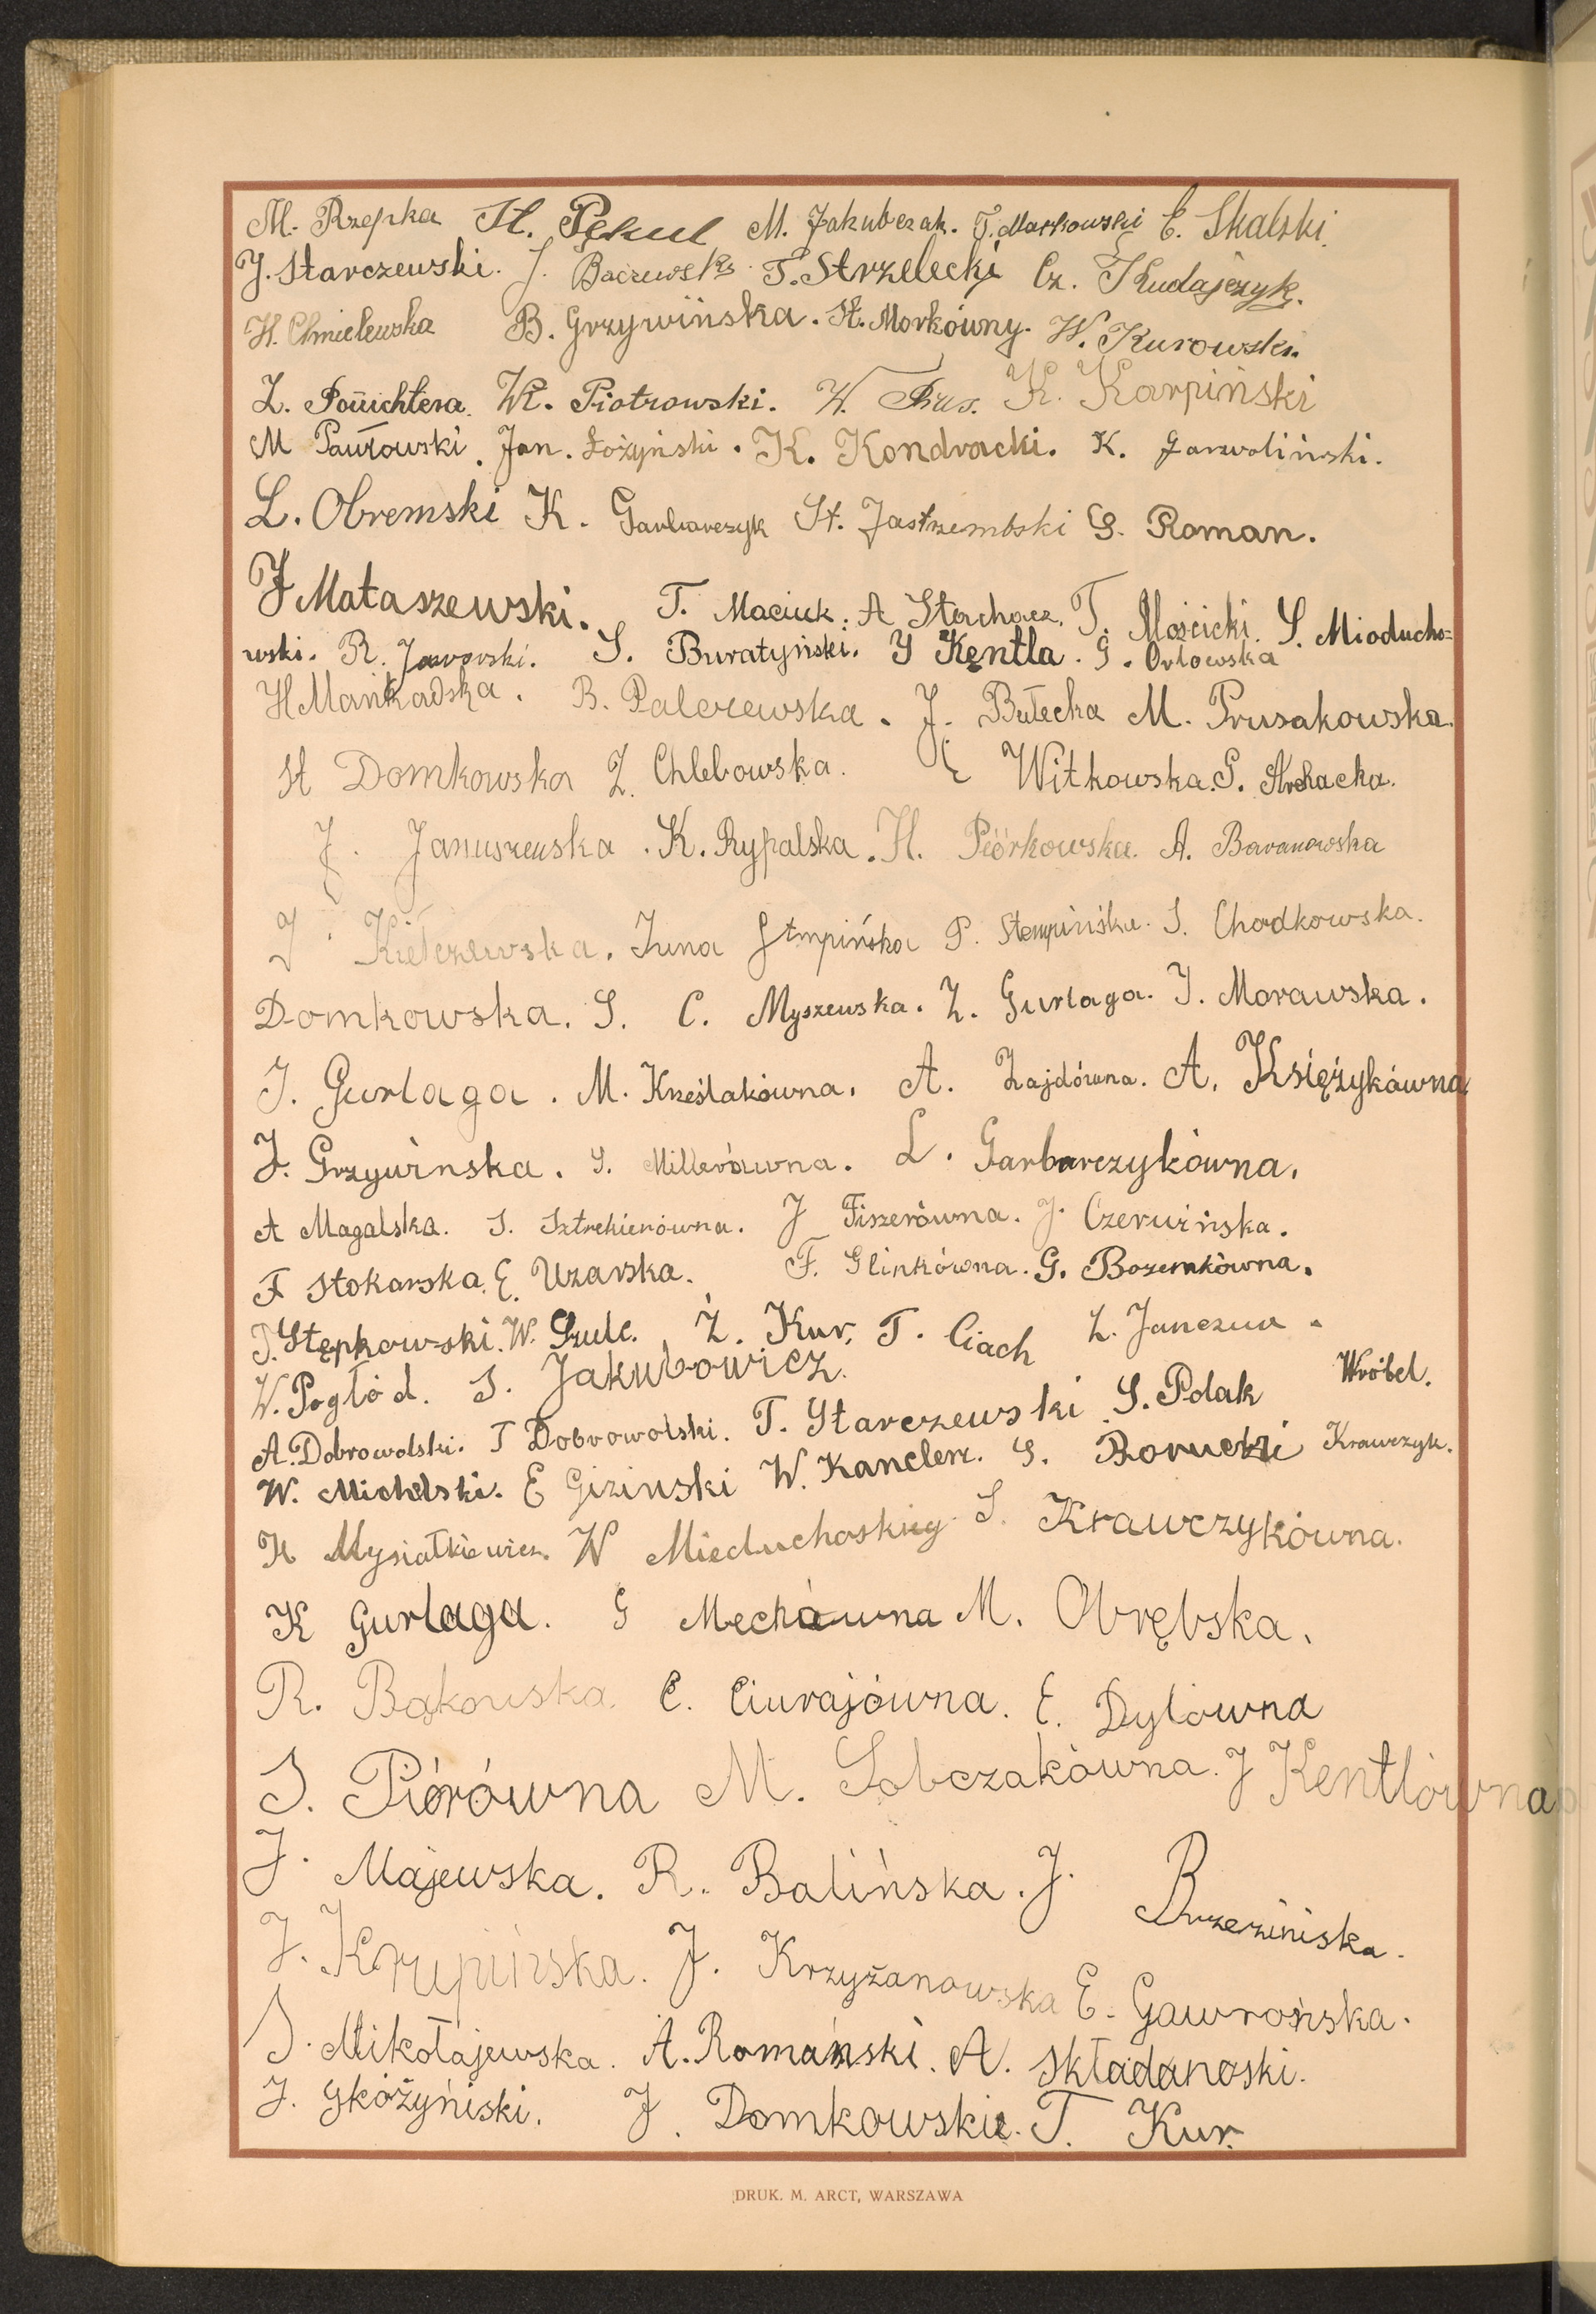 M. Rzepka H. Pękul M. Jakubczak. T. Markowski E. Skalski.
J. Starczewski. J. Baczewski. T. Strzelecki Cz. Kudajczyk.
H. Chmielewska B. Grzywińska. St. Morkówny. W. Kurowski.
Z. Powichtera. Wł. Piotrowski. W. Brus. K. Karpiński
M Pawłowski. Jan. Łożyński. K. Kondracki. K. Garwoliński.
L. Obremski K. Garbarczyk St. Jastrzembski G. Roman.
J Mataszewski. T. Maciuk. A Stachacz. T. Mościcki. S. Mioducho=
wski. R. Jaworski. S. Buratyński. J Kęntla. G. Orłowska
H Mańkadska. B. Palczewska. J. Bułecka M. Prusakowska.
H Domkowska Z. Chlebowska. E Witkowska. S.
J. Januszewska. K. Rypalska. H. Piórkowska. A. Baranowska
J. Kiełczewska. Irena Stmpińska P. Stempińska. S. Chodkowska.
Domkowska. S. C. Myszewska. Z. Gurlaga. J. Morawska.
J. Gurlaga. M. Krześlakówna. A. Zajdówna. A. Księżykówna
J. Grzywinska. S. Millerówna. L. Garbarczykówna.
A Magalska. S. Sztrekierówna. J Fiszerówna. J. Czerwińska.
F Stokarska. E. Uzarska. F. Glinkówna. G. Bozemkówna.
T. Stępkowski. W. Szulc. Z. Kur. T. Ciach Z. Janczua.
W. Pogłód. S. Jakubowicz. Wróbel.
A. Dobrowolski. T Dobrowolski. T. Starczewski S. Polak
W. Michelski. E Gizinski W. Kanclerz. S. Borucki Krawczyk.
H Mysiałkiewicz. W Mieduchoskieg. S. Krawczykówna.
K Gurlaga. G Mechówna M. Obrębska.
R. Bąkowska C. Ciurajówna. E. Dylówna
S. Piórówna M. Sobczakówna. J Kentlówna
J. Majewska. R. Balińska. J. Brzeziniska.
J. Krupińska. J. Krzyżanowska E. Gawrońska.
S. Mikołajewska. A. Romański. A. Składanoski.
J. Gkóżyński. J. Domkowski. T. Kur.
DRUK. M. ARCT, WARSZAWA